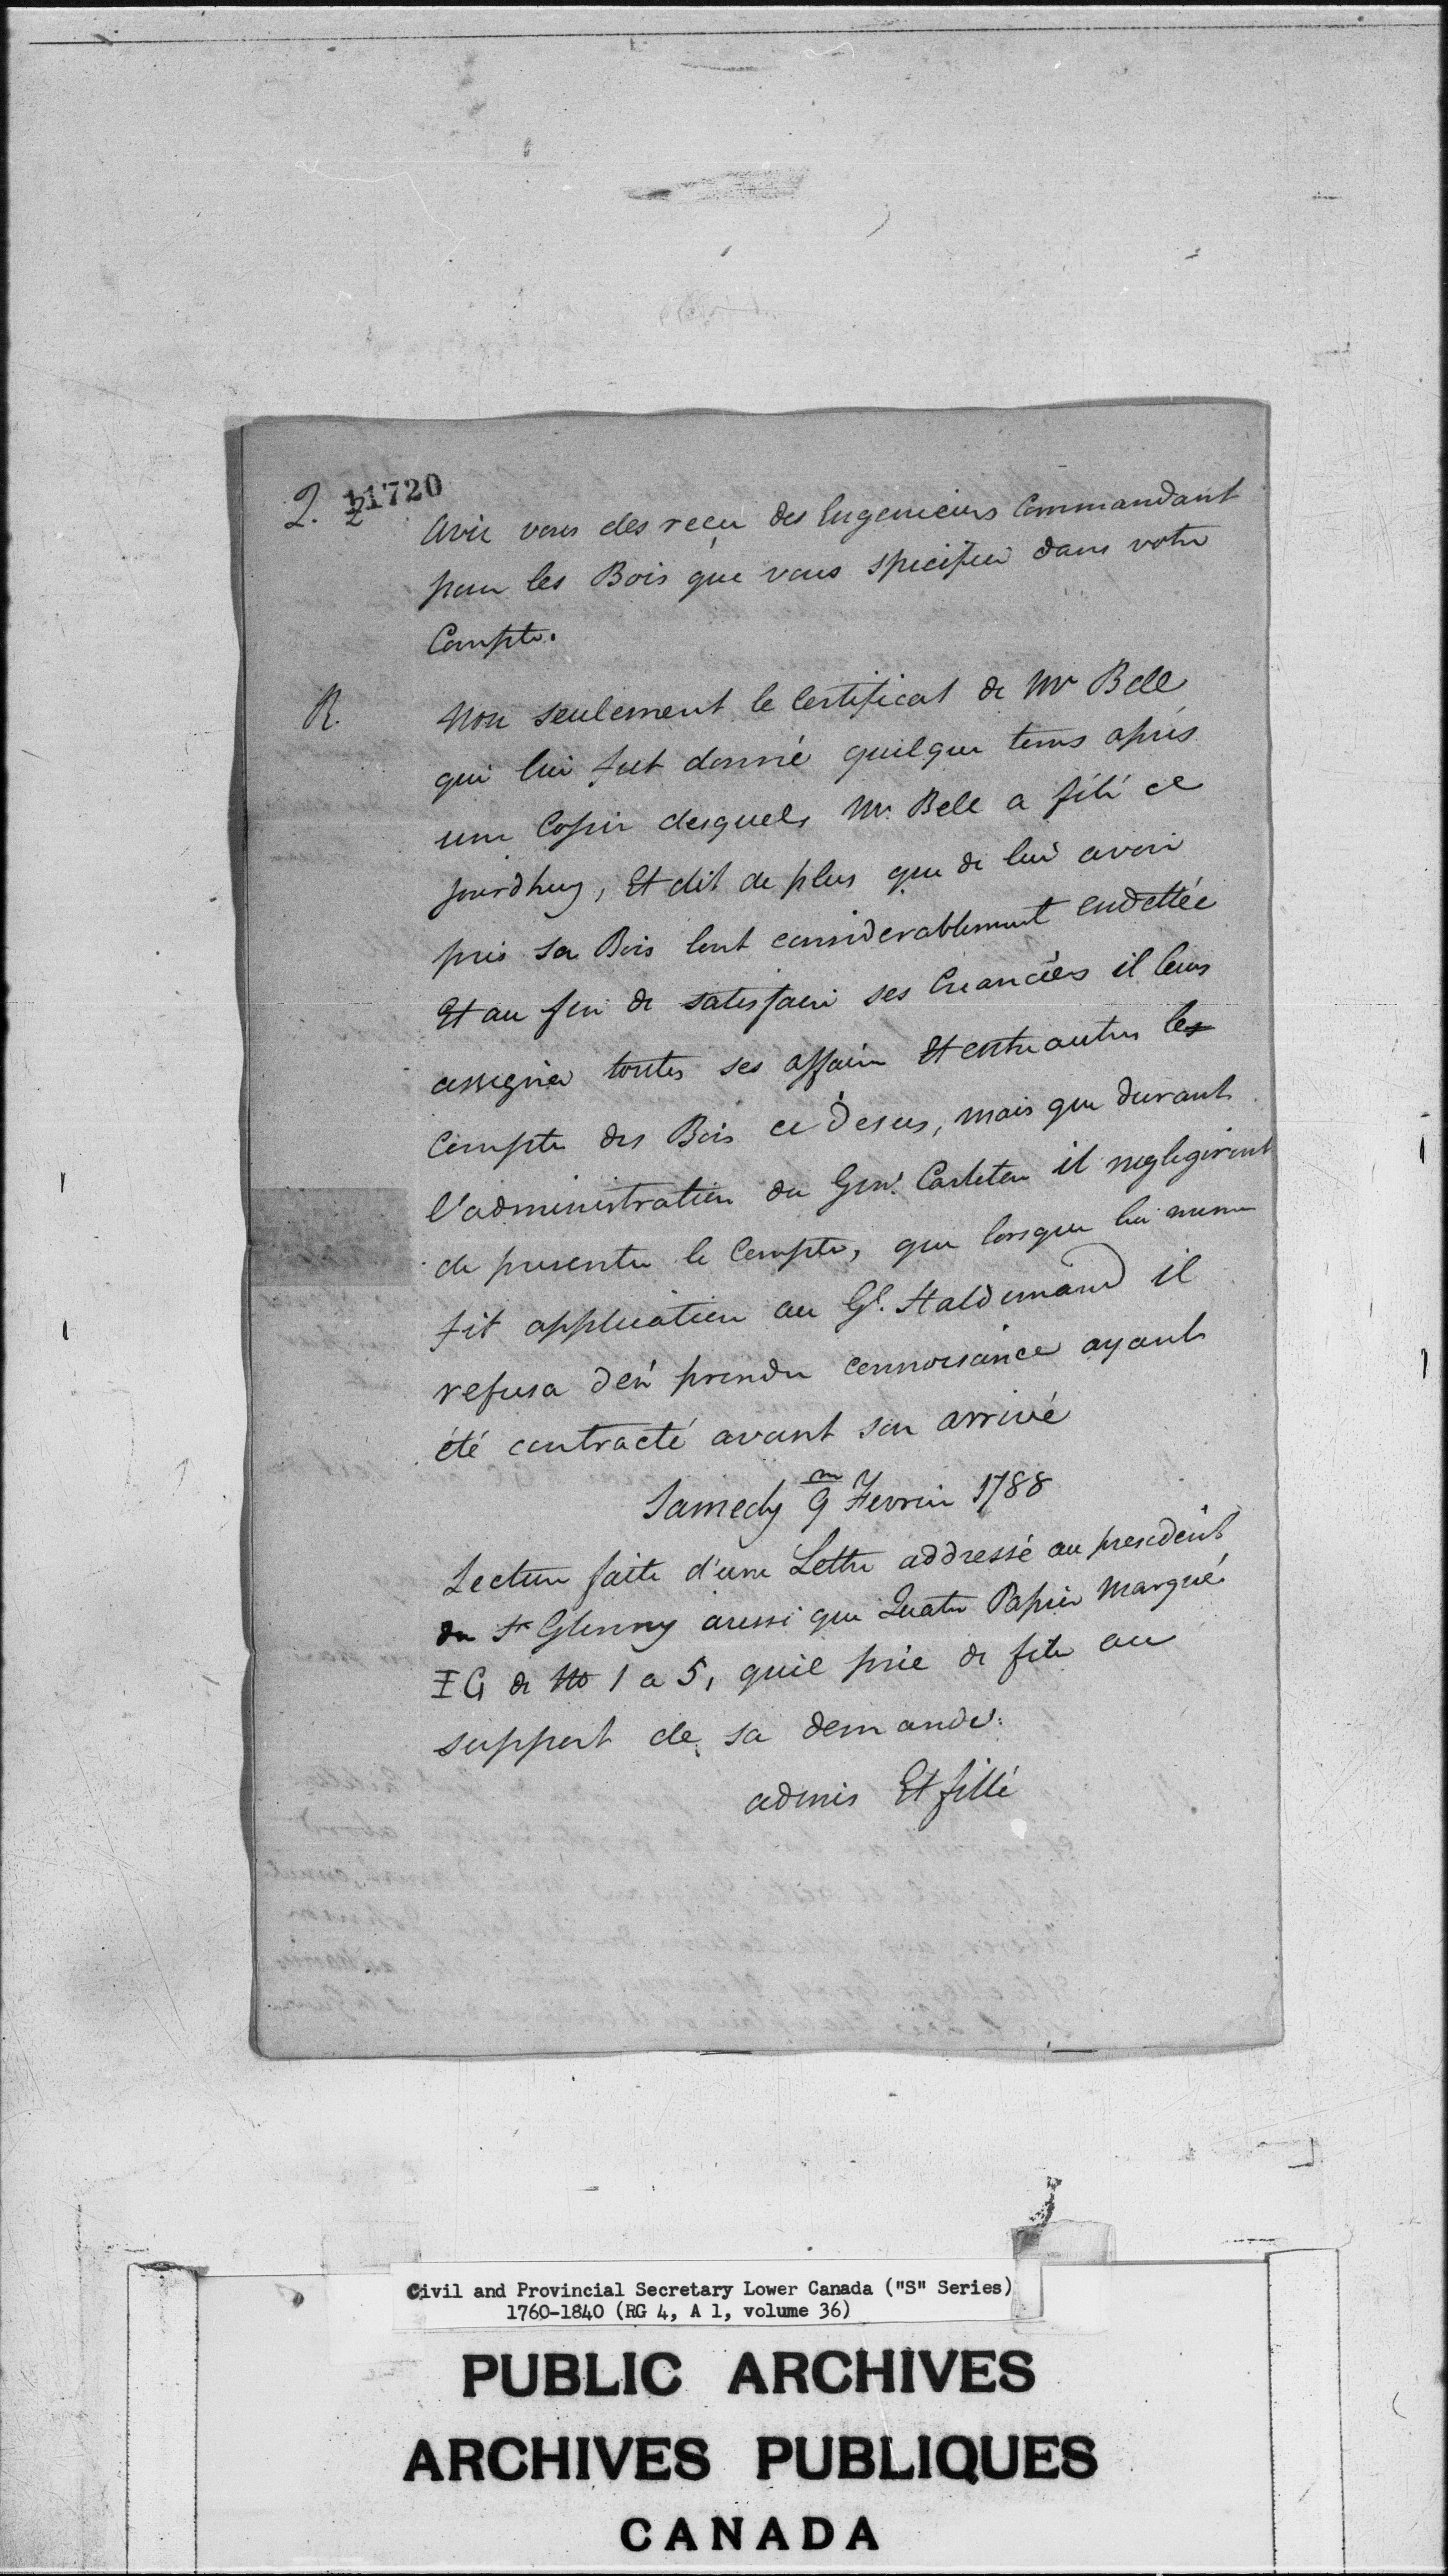 11720
Q. 2
Avie vous des reçu des Engenieurs Commandant
pour les Bois que vous specifiée dans votre
Compte.
R. Non seulement le Certificat de Mr Bell
qui lui fut donné quelque tems après
une Copie desquels Mr Bell a filé ce
jourdhuy, Et dit de plus que de lui avoir
pris sa Bois lont considerablement endettée
Et au fin de satisfaire ses Creanciés il leurs
assigna toutes ses affaire Et entre autres le
Compte des Bois ce desus, mais que durant
l'administration du Genl. Carleton il neglegirent
de presenter le Compte, que lorsque lui meme
fit application au Gl. Haldimand il
refusa d'en prendre connoisance ayant
été contracté avant son arrivé
Samedy 9 Fevrier 1788
Lecture faite d'une Lettre addressé au president
du Sr Glenny aussi que Quatre Papier Marqué
I G de No 1 a 5, quil prie de file au
support de sa demande.
admis Et fillé
Civil and Provincial Secretary Lower Canada ("S" Series)
1760-1840 (RG 4, A 1, volume 36)
PUBLIC ARCHIVES
ARCHIVES PUBLIQUES
CANADA